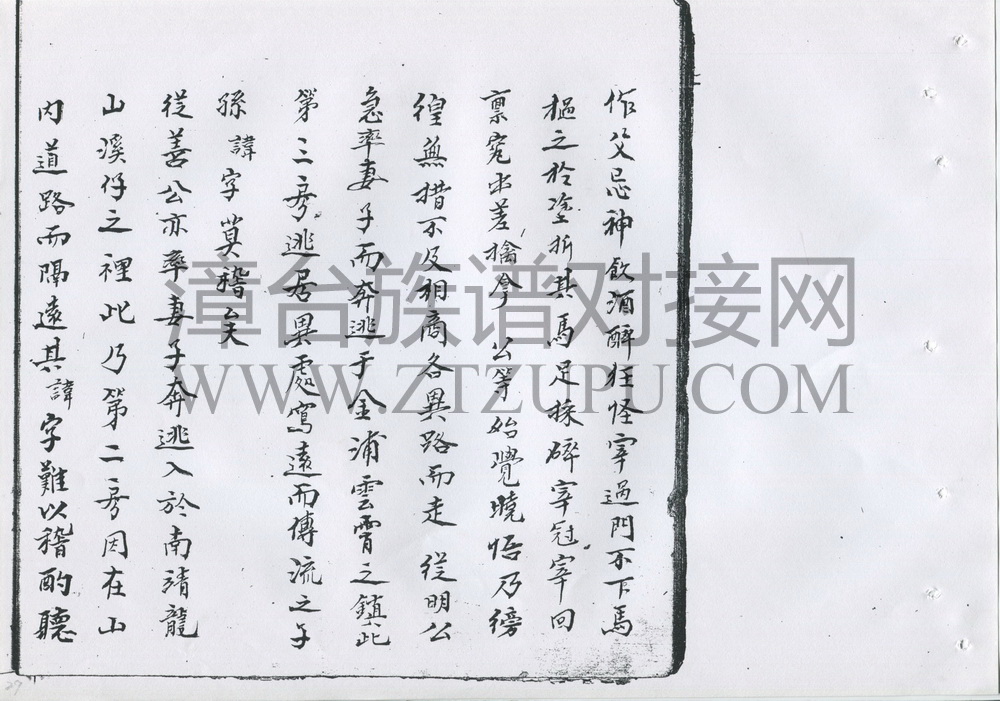 作父忌神飲酒醉狂怪宰過門不下馬
樞之於塗折其馬足採碎宰冠宰回
禀究出差擒拿 公等始覺曉悟乃徬
徨無措不及相商各異路而走 從明公
急率妻子而奔逃于金浦雲霄之鎮此
第三房逃居異處寫遠而傳流之子
孫諱字莫稽矣
從善公亦率妻子奔逃入於南靖龍
山溪仔之裡此乃第二房因在山
内道路而隔遠其諱字難以稽酌聽
漳台族谱对接网
WWW.ZTZUPU.COM
27